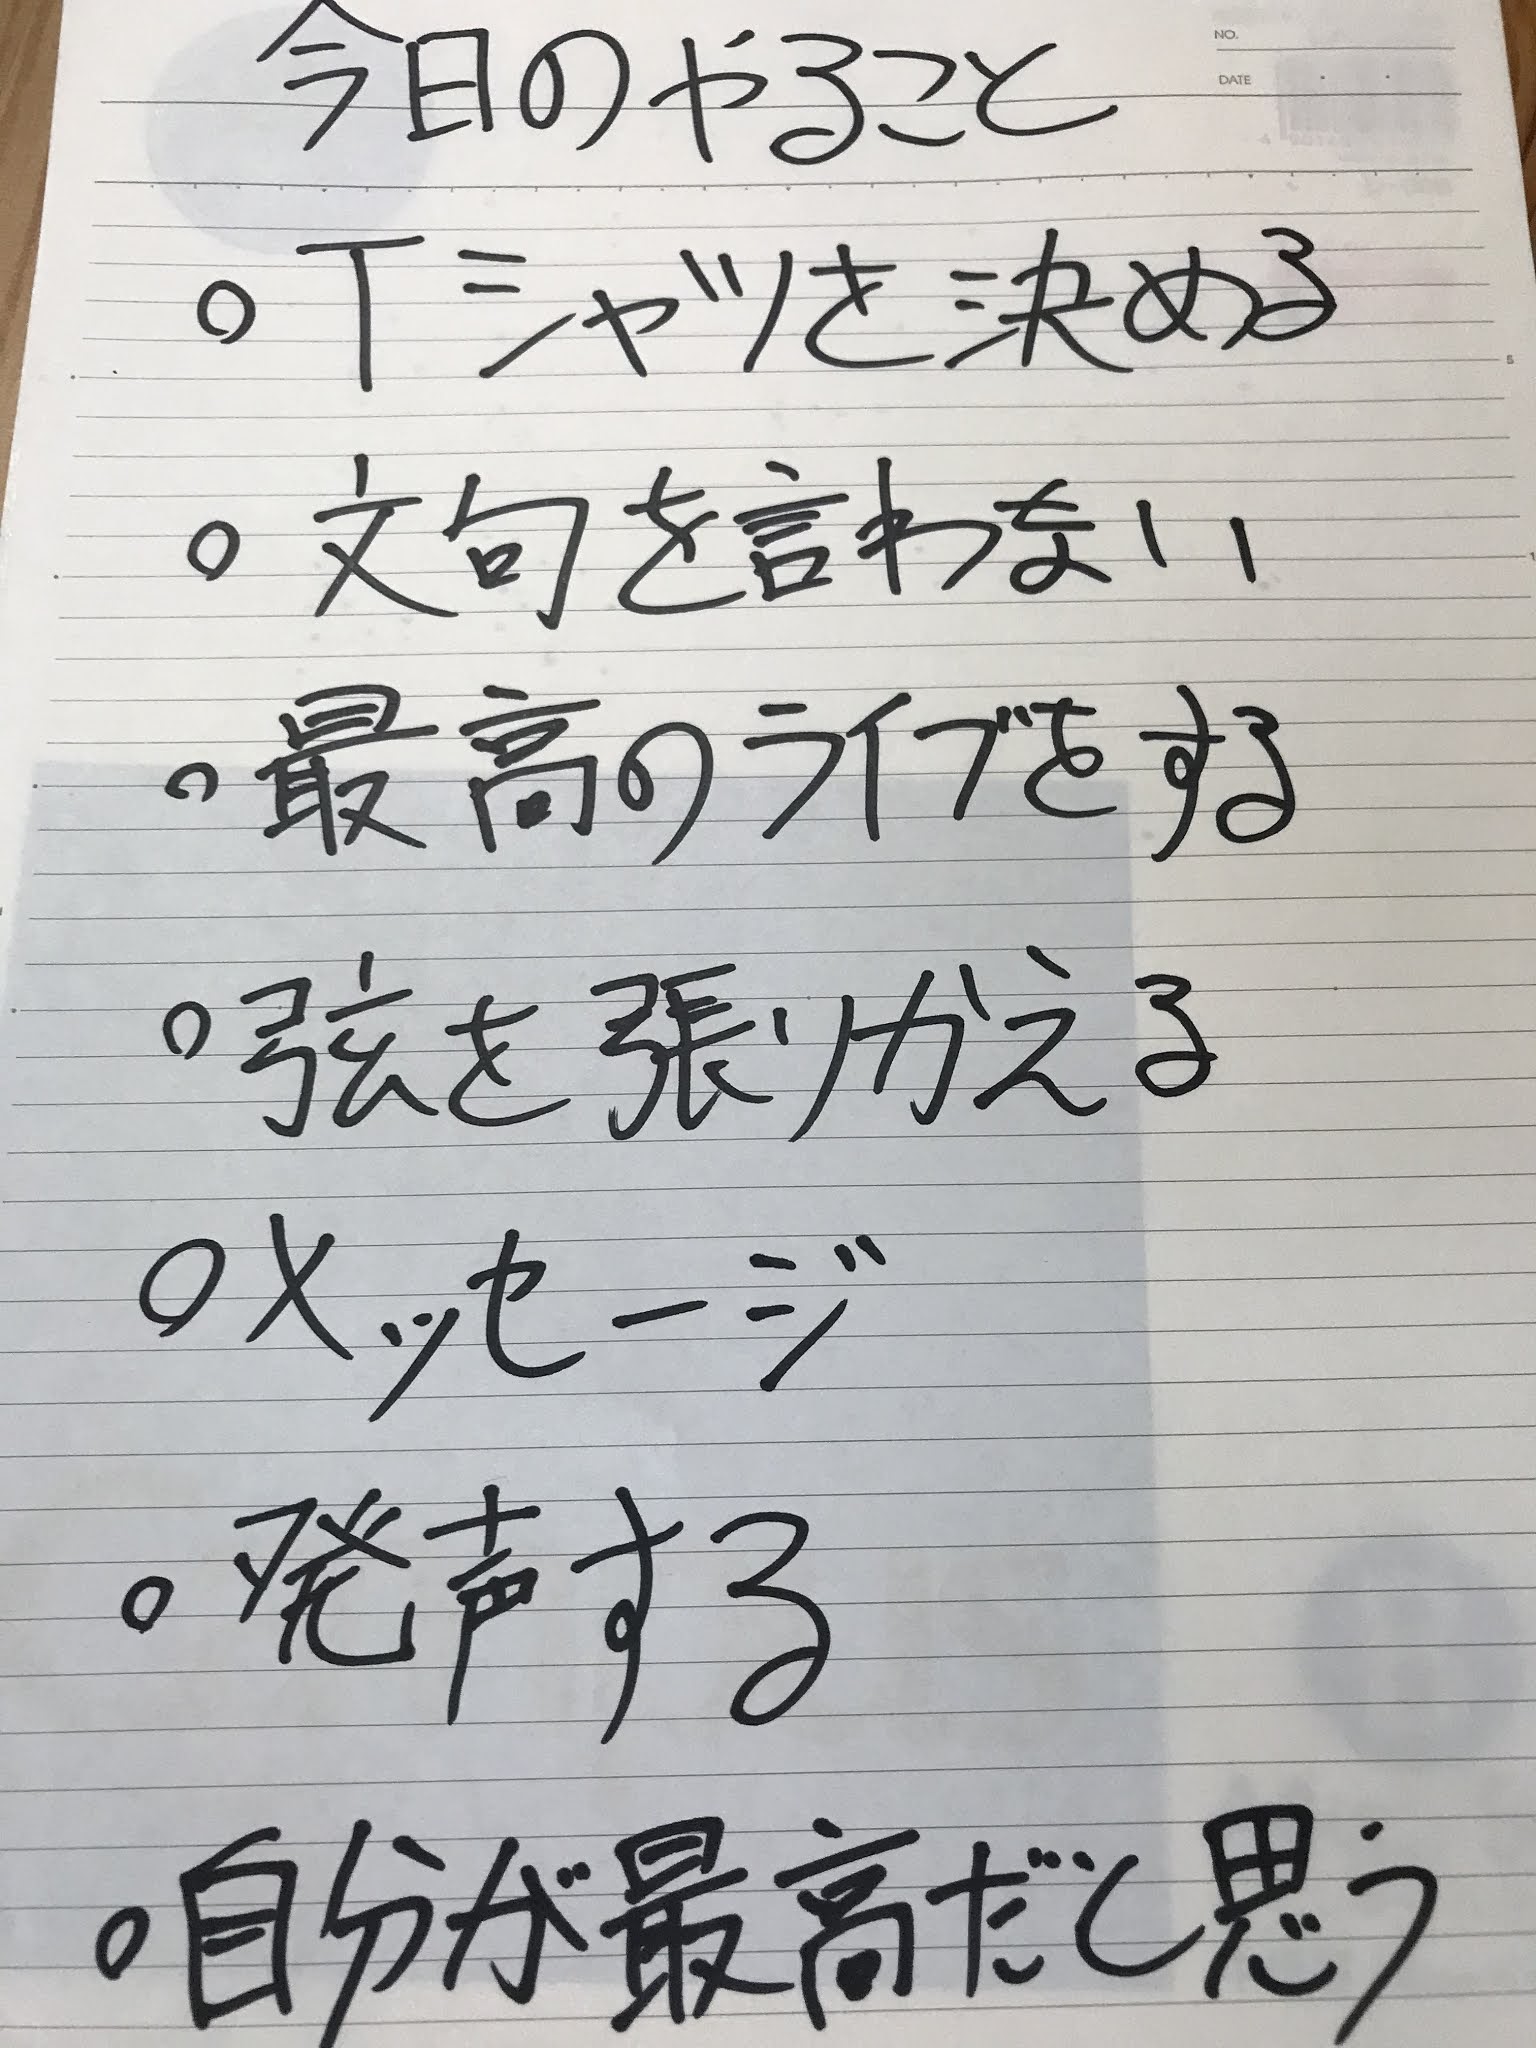 NO.
DATE
今日のやること
○Tシャツを決める
5
○文句を言わない
○最高のライブをする
○弦を張りかえる
○メッセージ
○発声する
○自分が最高だと思う